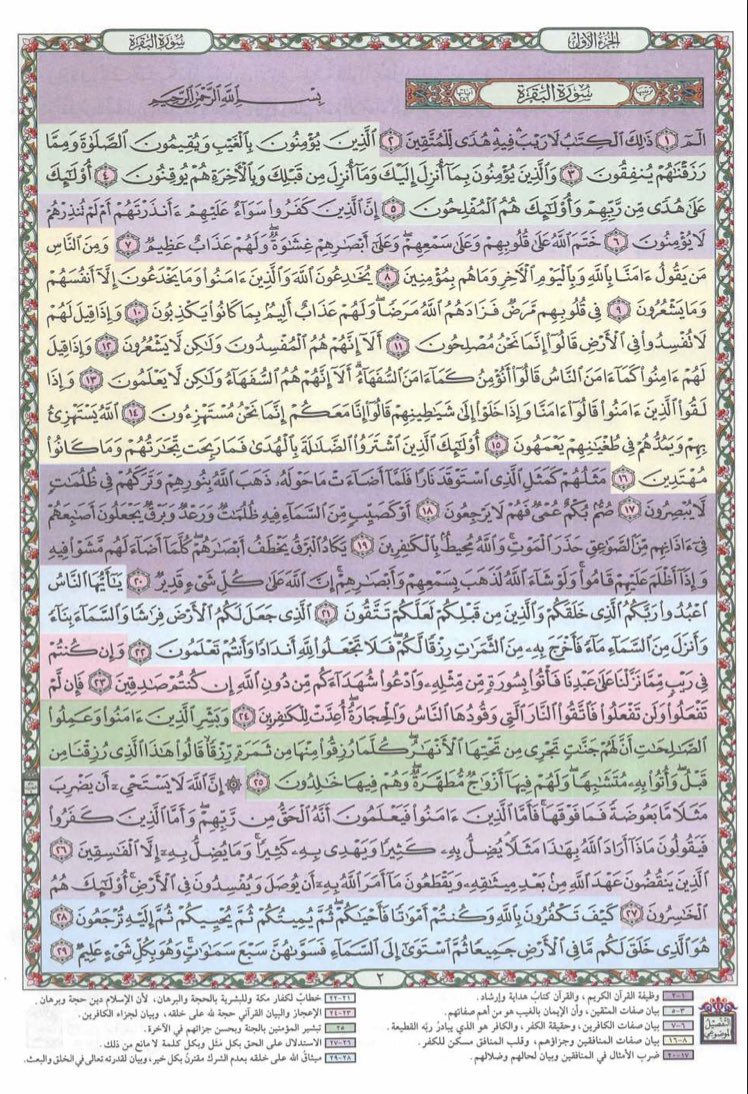 الجزء الأول
سورة البقرة
ترتيبها ٢ سورة البقرة آياتها ٢٨٦
بسم الله الرحمن الرحيم
الٓمٓ ١ ذَٰلِكَ ٱلْكِتَٰبُ لَا رَيْبَ فِيهِ هُدًى لِّلْمُتَّقِينَ ٢ ٱلَّذِينَ يُؤْمِنُونَ بِٱلْغَيْبِ وَيُقِيمُونَ ٱلصَّلَوٰةَ وَمِمَّا
رَزَقْنَٰهُمْ يُنفِقُونَ ٣ وَٱلَّذِينَ يُؤْمِنُونَ بِمَآ أُنزِلَ إِلَيْكَ وَمَآ أُنزِلَ مِن قَبْلِكَ وَبِٱلْءَاخِرَةِ هُمْ يُوقِنُونَ ٤ أُو۟لَٰٓئِكَ
عَلَىٰ هُدًى مِّن رَّبِّهِمْ وَأُو۟لَٰٓئِكَ هُمُ ٱلْمُفْلِحُونَ ٥ إِنَّ ٱلَّذِينَ كَفَرُوا۟ سَوَآءٌ عَلَيْهِمْ ءَأَنذَرْتَهُمْ أَمْ لَمْ تُنذِرْهُمْ
لَا يُؤْمِنُونَ ٦ خَتَمَ ٱللَّهُ عَلَىٰ قُلُوبِهِمْ وَعَلَىٰ سَمْعِهِمْ وَعَلَىٰٓ أَبْصَٰرِهِمْ غِشَٰوَةٌ وَلَهُمْ عَذَابٌ عَظِيمٌ ٧ وَمِنَ ٱلنَّاسِ
مَن يَقُولُ ءَامَنَّا بِٱللَّهِ وَبِٱلْيَوْمِ ٱلْءَاخِرِ وَمَا هُم بِمُؤْمِنِينَ ٨ يُخَٰدِعُونَ ٱللَّهَ وَٱلَّذِينَ ءَامَنُوا۟ وَمَا يَخْدَعُونَ إِلَّآ أَنفُسَهُمْ
وَمَا يَشْعُرُونَ ٩ فِى قُلُوبِهِم مَّرَضٌ فَزَادَهُمُ ٱللَّهُ مَرَضًا وَلَهُمْ عَذَابٌ أَلِيمٌۢ بِمَا كَانُوا۟ يَكْذِبُونَ ١٠ وَإِذَا قِيلَ لَهُمْ
لَا تُفْسِدُوا۟ فِى ٱلْأَرْضِ قَالُوٓا۟ إِنَّمَا نَحْنُ مُصْلِحُونَ ١١ أَلَآ إِنَّهُمْ هُمُ ٱلْمُفْسِدُونَ وَلَٰكِن لَّا يَشْعُرُونَ ١٢ وَإِذَا قِيلَ
لَهُمْ ءَامِنُوا۟ كَمَآ ءَامَنَ ٱلنَّاسُ قَالُوٓا۟ أَنُؤْمِنُ كَمَآ ءَامَنَ ٱلسُّفَهَآءُ أَلَآ إِنَّهُمْ هُمُ ٱلسُّفَهَآءُ وَلَٰكِن لَّا يَعْلَمُونَ ١٣ وَإِذَا
لَقُوا۟ ٱلَّذِينَ ءَامَنُوا۟ قَالُوٓا۟ ءَامَنَّا وَإِذَا خَلَوْا۟ إِلَىٰ شَيَٰطِينِهِمْ قَالُوٓا۟ إِنَّا مَعَكُمْ إِنَّمَا نَحْنُ مُسْتَهْزِءُونَ ١٤ ٱللَّهُ يَسْتَهْزِئُ
بِهِمْ وَيَمُدُّهُمْ فِى طُغْيَٰنِهِمْ يَعْمَهُونَ ١٥ أُو۟لَٰٓئِكَ ٱلَّذِينَ ٱشْتَرَوُا۟ ٱلضَّلَٰلَةَ بِٱلْهُدَىٰ فَمَا رَبِحَت تِّجَٰرَتُهُمْ وَمَا كَانُوا۟
مُهْتَدِينَ ١٦ مَثَلُهُمْ كَمَثَلِ ٱلَّذِى ٱسْتَوْقَدَ نَارًا فَلَمَّآ أَضَآءَتْ مَا حَوْلَهُۥ ذَهَبَ ٱللَّهُ بِنُورِهِمْ وَتَرَكَهُمْ فِى ظُلُمَٰتٍ
لَّا يُبْصِرُونَ ١٧ صُمٌّۢ بُكْمٌ عُمْىٌ فَهُمْ لَا يَرْجِعُونَ ١٨ أَوْ كَصَيِّبٍ مِّنَ ٱلسَّمَآءِ فِيهِ ظُلُمَٰتٌ وَرَعْدٌ وَبَرْقٌ يَجْعَلُونَ أَصَٰبِعَهُمْ
فِىٓ ءَاذَانِهِم مِّنَ ٱلصَّوَٰعِقِ حَذَرَ ٱلْمَوْتِ وَٱللَّهُ مُحِيطٌۢ بِٱلْكَٰفِرِينَ ١٩ يَكَادُ ٱلْبَرْقُ يَخْطَفُ أَبْصَٰرَهُمْ كُلَّمَآ أَضَآءَ لَهُم مَّشَوْا۟ فِيهِ
وَإِذَآ أَظْلَمَ عَلَيْهِمْ قَامُوا۟ وَلَوْ شَآءَ ٱللَّهُ لَذَهَبَ بِسَمْعِهِمْ وَأَبْصَٰرِهِمْ إِنَّ ٱللَّهَ عَلَىٰ كُلِّ شَىْءٍ قَدِيرٌ ٢٠ يَٰٓأَيُّهَا ٱلنَّاسُ
ٱعْبُدُوا۟ رَبَّكُمُ ٱلَّذِى خَلَقَكُمْ وَٱلَّذِينَ مِن قَبْلِكُمْ لَعَلَّكُمْ تَتَّقُونَ ٢١ ٱلَّذِى جَعَلَ لَكُمُ ٱلْأَرْضَ فِرَٰشًا وَٱلسَّمَآءَ بِنَآءً
وَأَنزَلَ مِنَ ٱلسَّمَآءِ مَآءً فَأَخْرَجَ بِهِۦ مِنَ ٱلثَّمَرَٰتِ رِزْقًا لَّكُمْ فَلَا تَجْعَلُوا۟ لِلَّهِ أَندَادًا وَأَنتُمْ تَعْلَمُونَ ٢٢ وَإِن كُنتُمْ
فِى رَيْبٍ مِّمَّا نَزَّلْنَا عَلَىٰ عَبْدِنَا فَأْتُوا۟ بِسُورَةٍ مِّن مِّثْلِهِۦ وَٱدْعُوا۟ شُهَدَآءَكُم مِّن دُونِ ٱللَّهِ إِن كُنتُمْ صَٰدِقِينَ ٢٣ فَإِن لَّمْ
تَفْعَلُوا۟ وَلَن تَفْعَلُوا۟ فَٱتَّقُوا۟ ٱلنَّارَ ٱلَّتِى وَقُودُهَا ٱلنَّاسُ وَٱلْحِجَارَةُ أُعِدَّتْ لِلْكَٰفِرِينَ ٢٤ وَبَشِّرِ ٱلَّذِينَ ءَامَنُوا۟ وَعَمِلُوا۟
ٱلصَّٰلِحَٰتِ أَنَّ لَهُمْ جَنَّٰتٍ تَجْرِى مِن تَحْتِهَا ٱلْأَنْهَٰرُ كُلَّمَا رُزِقُوا۟ مِنْهَا مِن ثَمَرَةٍ رِّزْقًا قَالُوا۟ هَٰذَا ٱلَّذِى رُزِقْنَا مِن
قَبْلُ وَأُتُوا۟ بِهِۦ مُتَشَٰبِهًا وَلَهُمْ فِيهَآ أَزْوَٰجٌ مُّطَهَّرَةٌ وَهُمْ فِيهَا خَٰلِدُونَ ٢٥ ۞ إِنَّ ٱللَّهَ لَا يَسْتَحْىِۦٓ أَن يَضْرِبَ
مَثَلًا مَّا بَعُوضَةً فَمَا فَوْقَهَا فَأَمَّا ٱلَّذِينَ ءَامَنُوا۟ فَيَعْلَمُونَ أَنَّهُ ٱلْحَقُّ مِن رَّبِّهِمْ وَأَمَّا ٱلَّذِينَ كَفَرُوا۟
فَيَقُولُونَ مَاذَآ أَرَادَ ٱللَّهُ بِهَٰذَا مَثَلًا يُضِلُّ بِهِۦ كَثِيرًا وَيَهْدِى بِهِۦ كَثِيرًا وَمَا يُضِلُّ بِهِۦٓ إِلَّا ٱلْفَٰسِقِينَ ٢٦
ٱلَّذِينَ يَنقُضُونَ عَهْدَ ٱللَّهِ مِنۢ بَعْدِ مِيثَٰقِهِۦ وَيَقْطَعُونَ مَآ أَمَرَ ٱللَّهُ بِهِۦٓ أَن يُوصَلَ وَيُفْسِدُونَ فِى ٱلْأَرْضِ أُو۟لَٰٓئِكَ هُمُ
ٱلْخَٰسِرُونَ ٢٧ كَيْفَ تَكْفُرُونَ بِٱللَّهِ وَكُنتُمْ أَمْوَٰتًا فَأَحْيَٰكُمْ ثُمَّ يُمِيتُكُمْ ثُمَّ يُحْيِيكُمْ ثُمَّ إِلَيْهِ تُرْجَعُونَ ٢٨
هُوَ ٱلَّذِى خَلَقَ لَكُم مَّا فِى ٱلْأَرْضِ جَمِيعًا ثُمَّ ٱسْتَوَىٰٓ إِلَى ٱلسَّمَآءِ فَسَوَّىٰهُنَّ سَبْعَ سَمَٰوَٰتٍ وَهُوَ بِكُلِّ شَىْءٍ عَلِيمٌ ٢٩
٢
التفصيل الموضوعي
١-٢ وظيفة القرآن الكريم، والقرآن كتاب هداية وإرشاد.
٣-٥ بيان صفات المتقين، وأن الإيمان بالغيب هو من أهم صفاتهم.
٦-٧ بيان صفات الكافرين، وحقيقة الكفر، والكافر هو الذي يبادر ربه القطيعة.
٨-١٦ بيان صفات المنافقين وجزاؤهم، وقلب المنافق مسكن للكفر.
١٧-٢٠ ضرب الأمثال في المنافقين وبيان لحالهم وضلالهم.
٢١-٢٢ خطاب لكفار مكة وللبشرية بالحجة والبرهان، لأن الإسلام دين حجة وبرهان.
٢٣-٢٤ الإعجاز والبيان القرآني حجة لله على خلقه، وبيان لجزاء الكافرين.
٢٥ تبشير المؤمنين بالجنة وبحسن جزائهم في الآخرة.
٢٦-٢٧ الاستدلال على الحق بكل مثل وبكل كلمة لا مانع من ذلك.
٢٨-٢٩ ميثاق الله على خلقه بعدم الشرك مقترن بكل خير، وبيان لقدرته تعالى في الخلق والبعث.